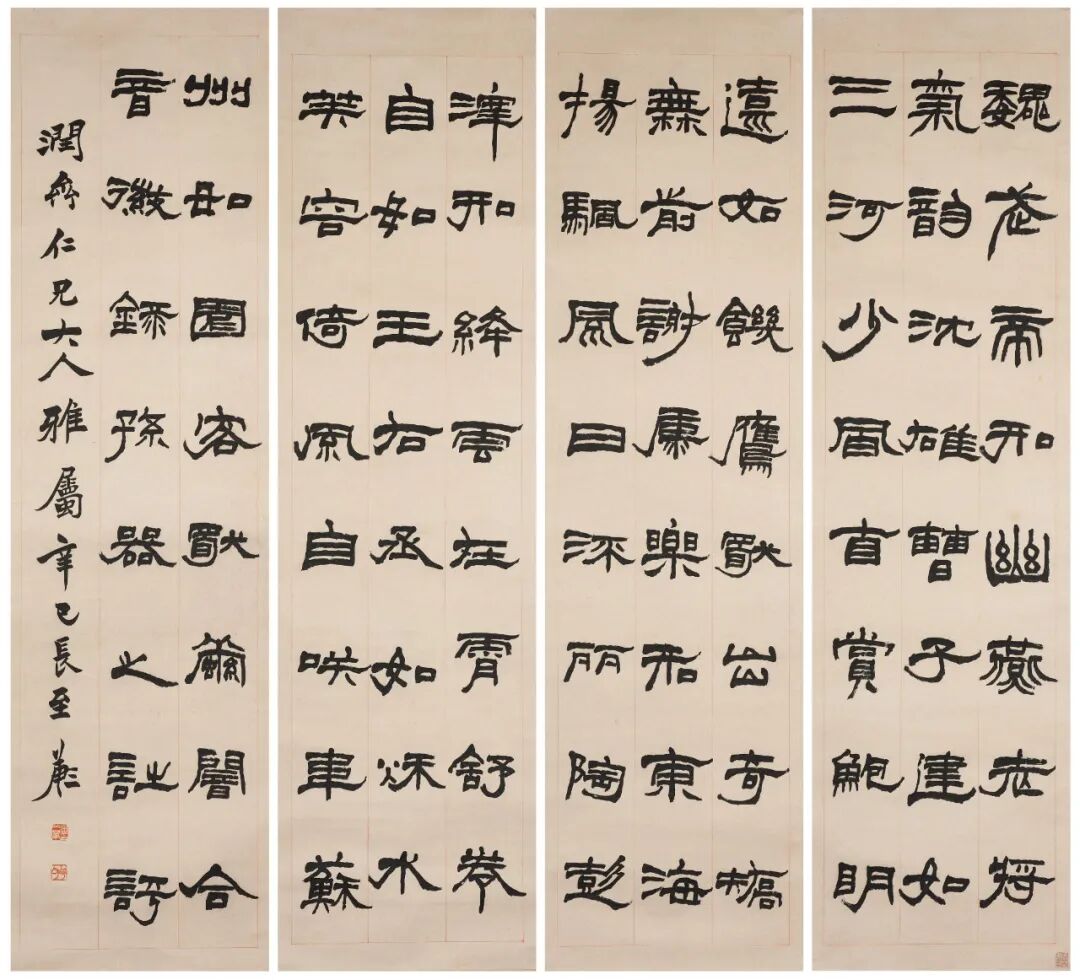 魏武帝如幽燕老將
氣韻沈雄曹子建如
三河少風直賞鮑明
遠如饑鷹獨出奇矯
無前謝康樂如東海
揚颿風日流麗陶彭
澤如絳雲在霄舒卷
自如王右丞如秋水
芙容倚風自咲韋蘇
州如園客獨繭闇合
音徽錄孫器之詩評
潤齊仁兄大人雅屬辛巳長至